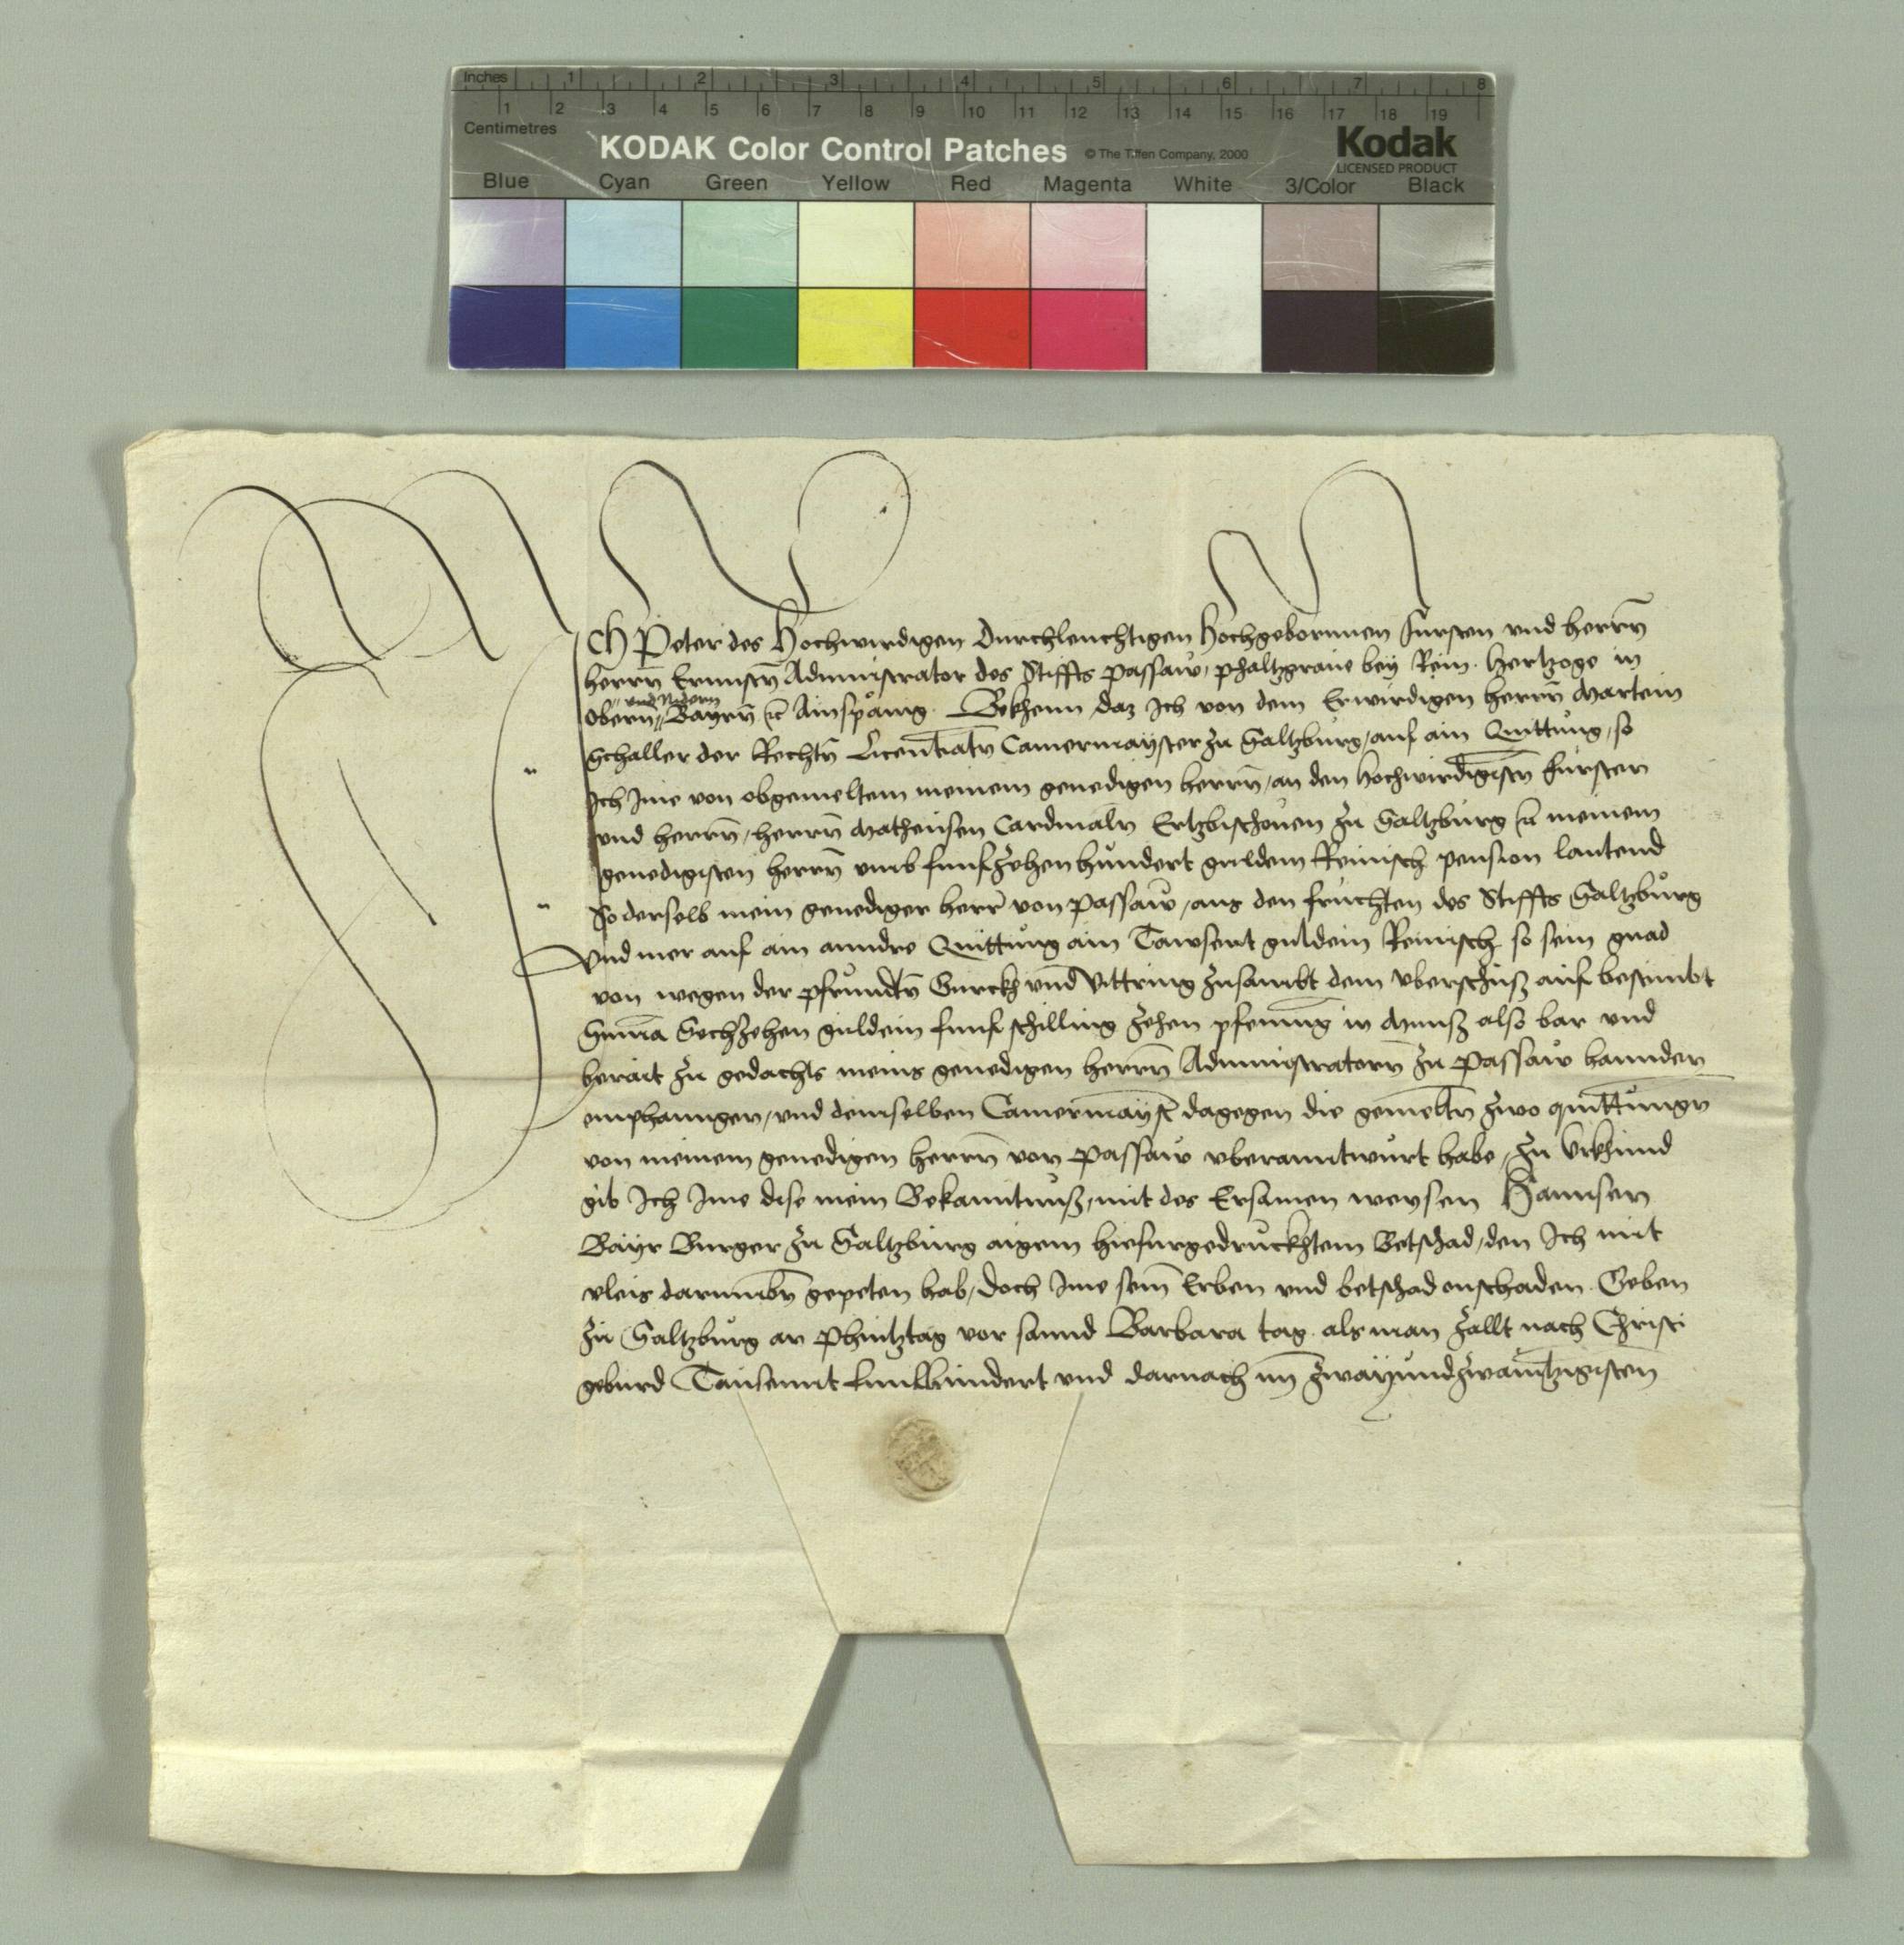 Inches 1 2 3 4 5 6 7 8
1 2 3 4 5 6 7 8 9 10 11 12 13 14 15 16 17 18 19
Centimetres
KODAK Color Control Patches © The Tiffen Company, 2000 Kodak
LICENSED PRODUCT
Blue Cyan Green Yellow Red Magenta White 3/Color Black
Ich Peter des Hochwirdigen Durchleuchtigen Hochgebornnen Fursten vnd herrn̄
herrn̄ Ernnstn̄ Administrator des Stiffts Passaw, phaltzgraue bey Rein. Hertzoge in
vnd Nidern
Obern Bayrn̄ ꝛc̄ Ainspänig. Bekhenn daz Ich von dem Erwirdigen herrn̄ Martein
Schaller der Rechtn̄ Licentiatn̄ Camermayster zu Saltzburg, auf ain Quittung, so
Ich Ime von obgemeltem meinem genedigen herrn̄, an den hochwirdigistn̄ fursten
vnd herrn̄, herrn̄ Matheusen Cardinaln̄ Ertzbischouen zu Saltzburg ꝛc̄ meinem
genedigisten herrn̄ vmb funfzehen hundert guldein Reinisch pension lautend
So derselb mein genediger herr̄ von Passaw, aus den fruchten des Stiffts Saltzburg
Vnd mer auf ain anndre Quittung ain Tawsent guldein Reinisch so sein gnad
von wegen der pfrundtn̄ Gurckh vnd Vittring zusambt dem vberschuß auf bestimbt
Sum̄a Sechzehen guldein funf schilling zehen pfening in Munß also bar vnd
berait zu gedachts meins genedigen herrn̄ Administratorn̄ zu Passaw hannden
emphanngen, vnd demselben Camermayst̄ dagegen die gemeltn̄ zwo quittungn̄
von meinem genedigen herrn̄ von Passaw vberanntwurt habe, Zu Vrkhund
gib Ich Ime dise mein Bekanntnuß, mit des Ersamen weysen Hannsen
Bayr Burger zu Saltzburg aigem hiefurgedruckhtem Betschad, den Ich mit
vleis darumbn̄ gepeten hab, doch Ime sein̄ Erben vnd betschad onschaden. Geben
zu Saltzburg an Phintztag vor sannd Barbara tag. als man zallt nach Christi
geburd Tausennt funfhundert vnd darnach im̄ zwayundzwaintzigisten